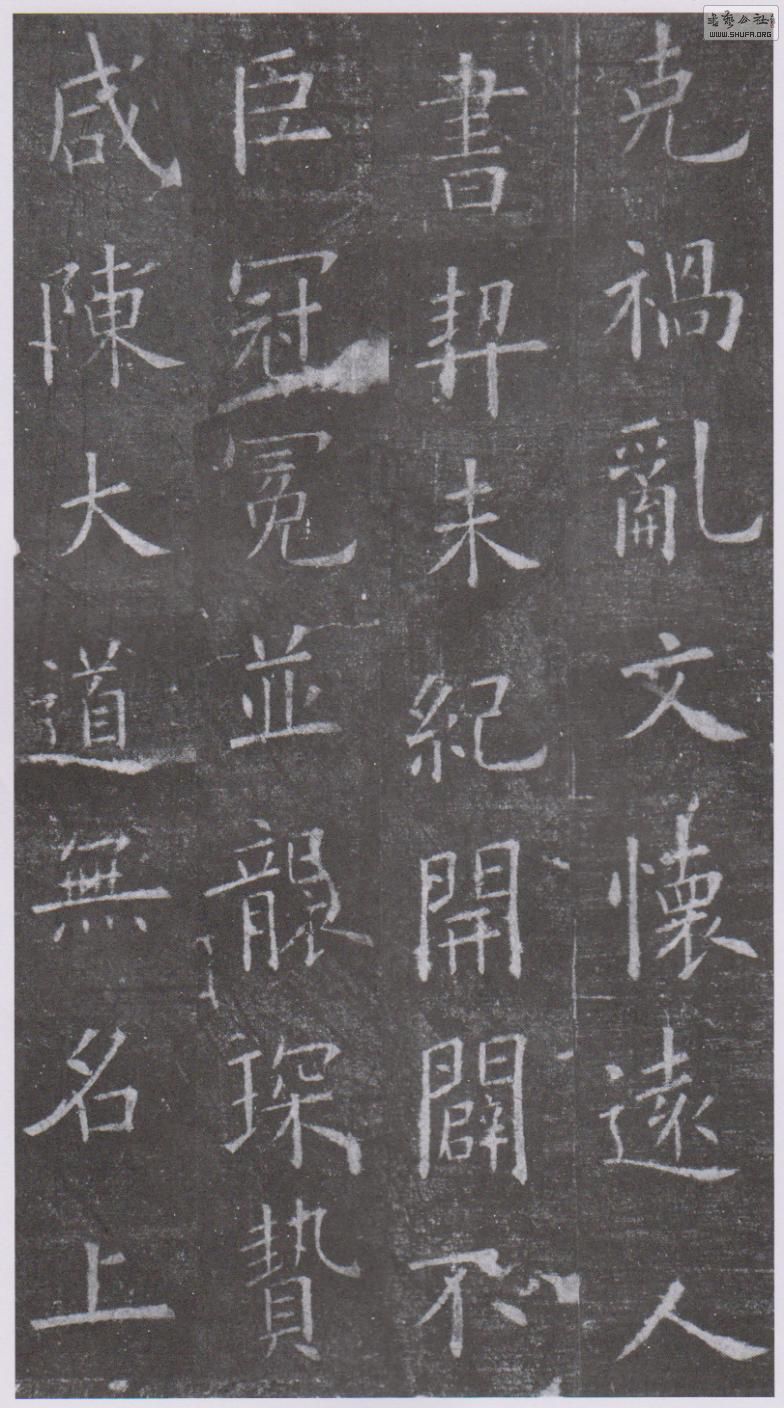 克禍亂文懷遠人
書契未紀開闢不
臣冠冕並襲琛贄
咸陳大道無名上
书艺公社
WWW.SHUFA.ORG